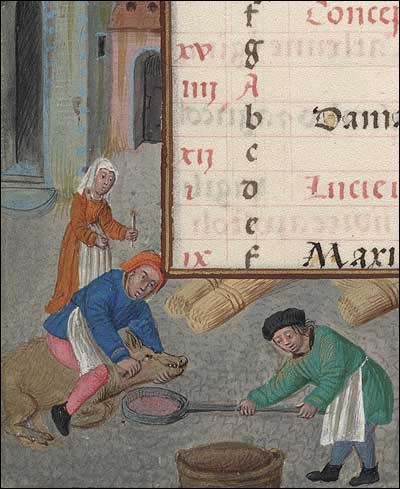 f Concep
xv g
iiij A
b Dama
xij c
i d Lucie v
e
ix f Maxi